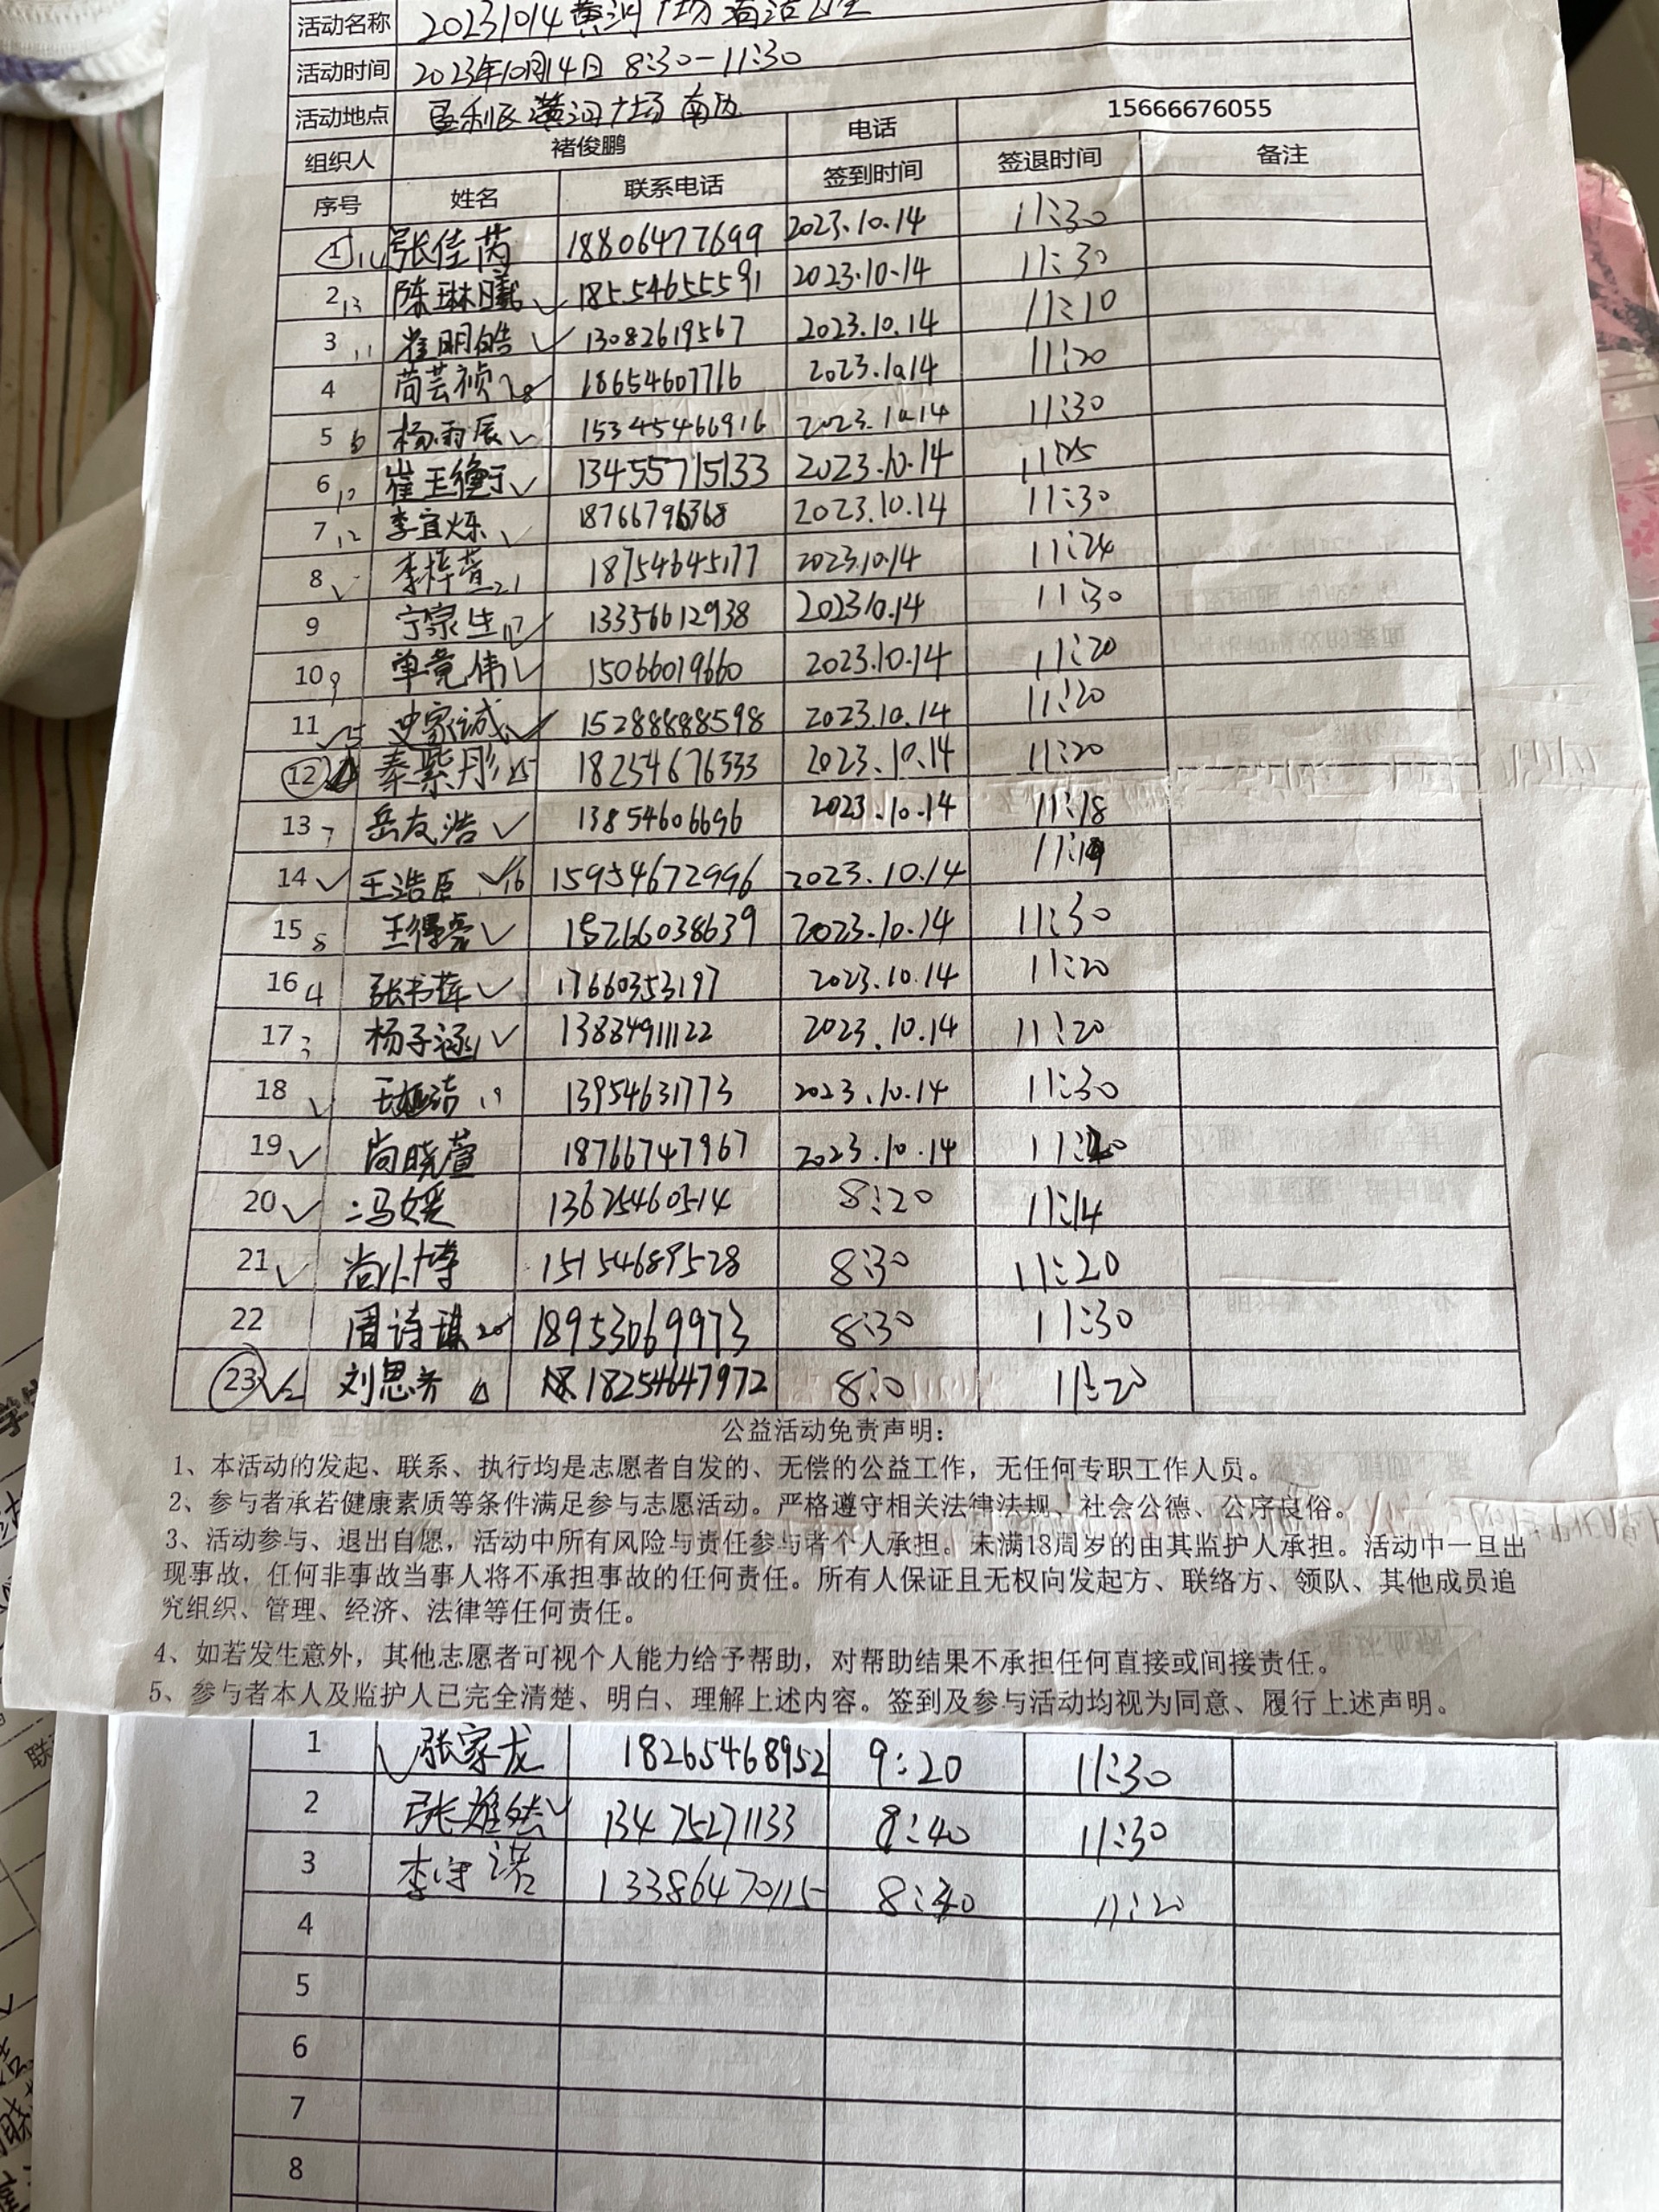 活动名称 20231014黄河广场清洁卫生
活动时间 2023年10月14日 8:30-11:30
活动地点 垦利区黄河广场南边
组织人 褚俊鹏 电话 15666676055
序号 姓名 联系电话 签到时间 签退时间 备注
1 14 张佳芮 18806477699 2023.10.14 11:30
2 13 陈琳曦 18554655591 2023.10.14 11:30
3 11 崔明皓 13082619567 2023.10.14 11:10
4 苘芸祯 18 18654607716 2023.10.14 11:20
5 6 杨雨辰 15345466916 2023.10.14 11:30
6 10 崔玉衡 13455715133 2023.10.14 11:25
7 12 李宜烁 18766796368 2023.10.14 11:30
8 李梓萱 21 18754645177 2023.10.14 11:24
9 宁家生 17 13356612938 2023.10.14 11:30
10 9 单竟伟 15066019660 2023.10.14 11:20
11 15 史家诚 15288888598 2023.10.14 11:20
12 秦紫彤 15 18254676333 2023.10.14 11:20
13 7 岳友浩 13854606696 2023.10.14 11:18
14 王浩臣 16 15954672996 2023.10.14 11:19
15 8 王得亮 15266038639 2023.10.14 11:30
16 4 张书萍 17660353197 2023.10.14 11:20
17 3 杨子涵 13884911122 2023.10.14 11:20
18 19 13954631773 2023.10.14 11:30
19 尚晓萱 18766747967 2023.10.14 11:20
20 冯媛 13625460514 8:20 11:14
21 尚小博 15154689528 8:30 11:20
22 周诗琪 20 18953069973 8:30 11:30
23 2 刘思齐 18254647972 8:0 11:20
公益活动免责声明：
1、本活动的发起、联系、执行均是志愿者自发的、无偿的公益工作，无任何专职工作人员。
2、参与者承若健康素质等条件满足参与志愿活动。严格遵守相关法律法规、社会公德、公序良俗。
3、活动参与、退出自愿，活动中所有风险与责任参与者个人承担。未满18周岁的由其监护人承担。活动中一旦出
现事故，任何非事故当事人将不承担事故的任何责任。所有人保证且无权向发起方、联络方、领队、其他成员追
究组织、管理、经济、法律等任何责任。
4、如若发生意外，其他志愿者可视个人能力给予帮助，对帮助结果不承担任何直接或间接责任。
5、参与者本人及监护人已完全清楚、明白、理解上述内容。签到及参与活动均视为同意、履行上述声明。
1 张家龙 18265468952 9:20 11:30
2 张雄然 13475271133 8:40 11:30
3 李守诺 13386470115 8:40 11:20
4
5
6
7
8